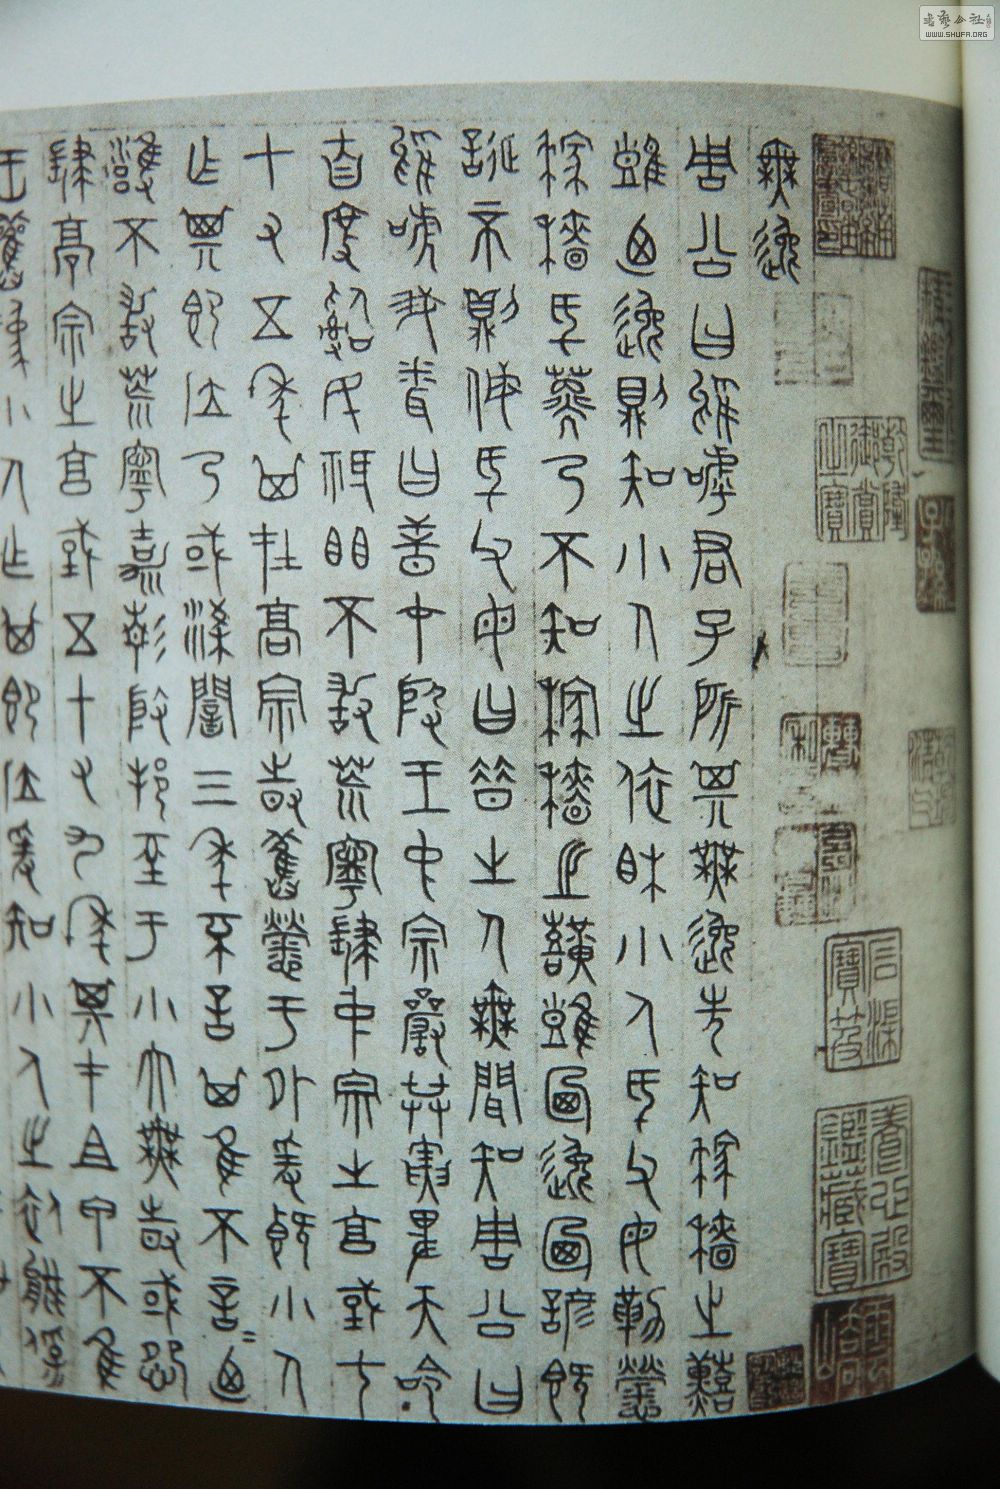 無逸
周公曰嗚呼君子所其無逸先知稼穡之艱
難乃逸則知小人之依相小人厥父母勤勞
稼穡厥子乃不知稼穡之艱難乃逸乃諺既
誕否則侮厥父母曰昔之人無聞知周公曰
嗚呼我聞曰昔在殷王中宗嚴恭寅畏天命
自度治民祗懼不敢荒寧肆中宗之享國七
十有五年其在高宗時舊勞于外爰既小人
作其即位乃或亮陰三年不言其惟不言言乃
雍不敢荒寧嘉靖殷邦至于小大無時或怨
肆高宗之享國五十有九年其在祖甲不惟
王舊為小人作其即位爰知小人之依能保
乾隆御賞之寶
石渠寶笈
養心殿鑑藏寶
書藝公社
WWW.SHUFA.ORG